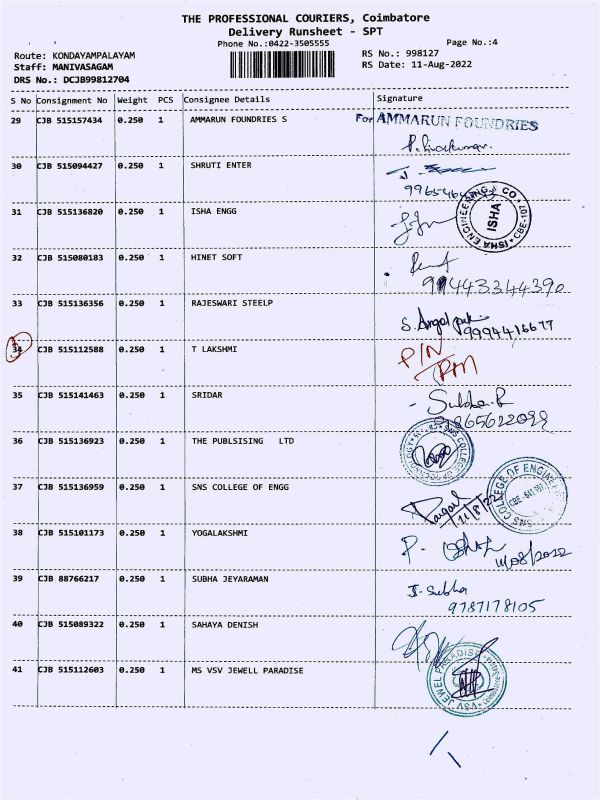 THE PROFESSIONAL COURIERS, Coimbatore
Delivery Runsheet - SPT
Phone No.:0422-3505555
Page No.:4
Route: KONDAYAMPALAYAM
RS No.: 998127
Staff: MANIVASAGAM
RS Date: 11-Aug-2022
DRS No.: DCJB99812704
S No Consignment No Weight PCS Consignee Details Signature
29 CJB 515157434 0.250 1 AMMARUN FOUNDRIES S For AMMARUN FOUNDRIES
30 CJB 515094427 0.250 1 SHRUTI ENTER
31 CJB 515136820 0.250 1 ISHA ENGG
ISHA ENGINEERING & CO. * CBE-107 *
ISHA
32 CJB 515080183 0.250 1 HINET SOFT
9944334390
33 CJB 515136356 0.250 1 RAJESWARI STEELP
9994416677
34 CJB 515112588 0.250 1 T LAKSHMI P/N
35 CJB 515141463 0.250 1 SRIDAR
Subha.R
9865622099
36 CJB 515136923 0.250 1 THE PUBLSISING LTD
37 CJB 515136959 0.250 1 SNS COLLEGE OF ENGG
11/8/22
38 CJB 515101173 0.250 1 YOGALAKSHMI
11/08/2022
39 CJB 88766217 0.250 1 SUBHA JEYARAMAN
J. Subha
9787178105
40 CJB 515089322 0.250 1 SAHAYA DENISH
41 CJB 515112603 0.250 1 MS VSV JEWELL PARADISE